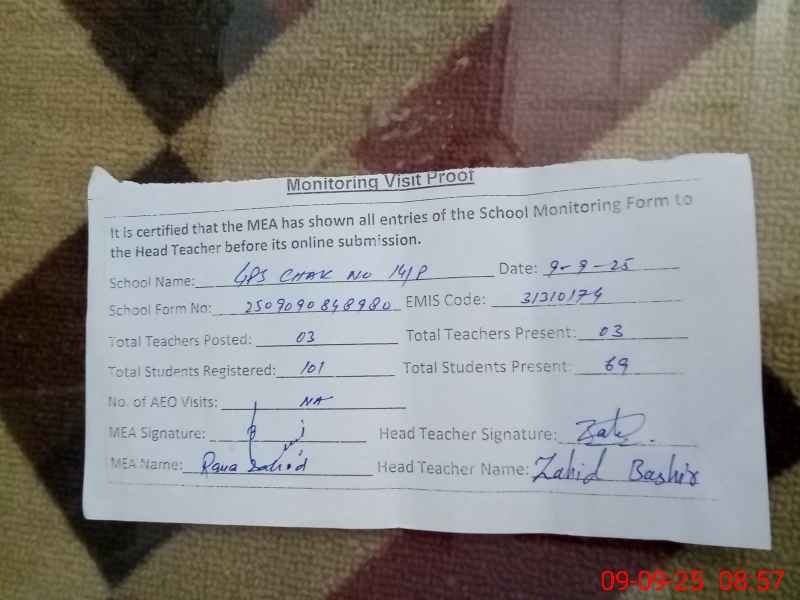 Monitoring Visit Proof
It is certified that the MEA has shown all entries of the School Monitoring Form to
the Head Teacher before its online submission.
School Name: GPS CHAK NO 141/P Date: 9-9-25
School Form No: 2509090848980 EMIS Code: 31310174
Total Teachers Posted: 03 Total Teachers Present: 03
Total Students Registered: 101 Total Students Present: 69
No. of AEO Visits: NA
MEA Signature: Head Teacher Signature:
MEA Name: Rana Head Teacher Name: Zahid Bashir
09-09-25 08:57